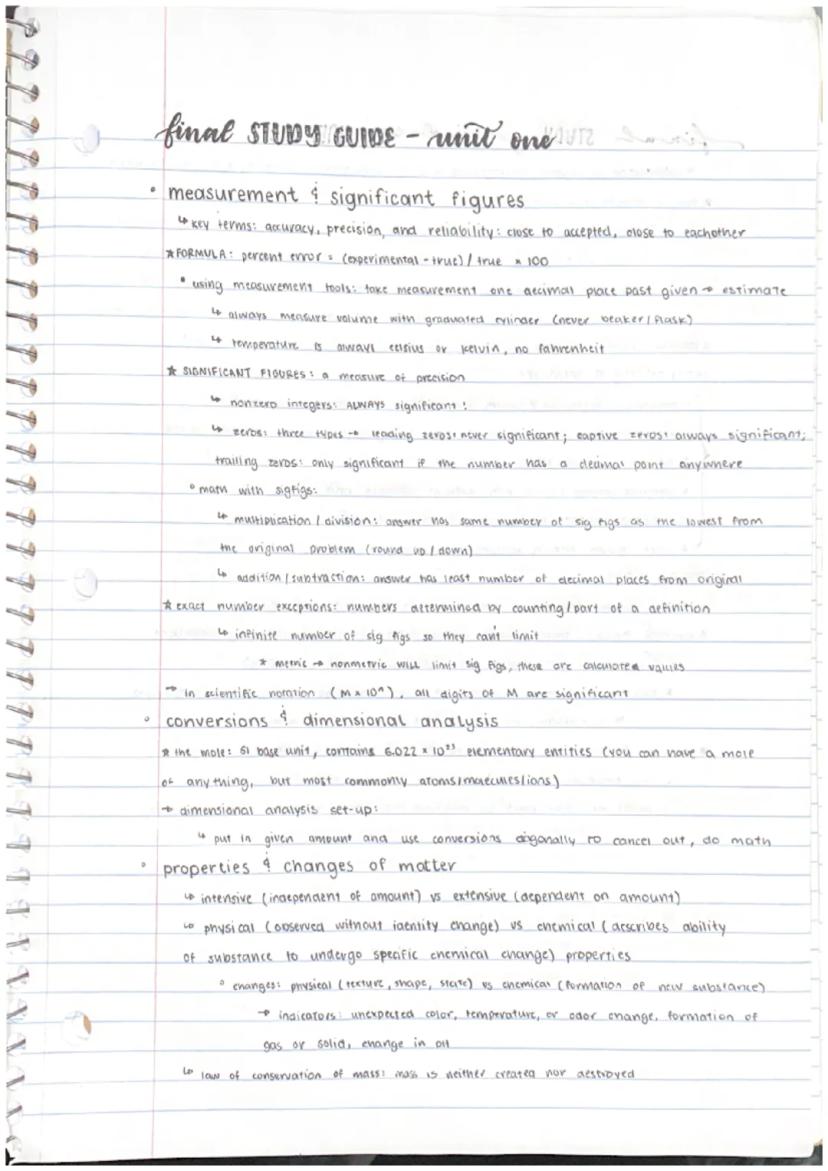 final STUDY GUIDE - unit one
• measurement & significant figures
↳ key terms: accuracy, precision, and reliability: close to accepted, close to eachother
★ FORMULA: percent error = (experimental - true) / true × 100
• using measurement tools: take measurement one decimal place past given → estimate
↳ always measure volume with graduated cylinder (never beaker/flask)
↳ temperature is always celsius or kelvin, no fahrenheit
★ SIGNIFICANT FIGURES: a measure of precision
↳ nonzero integers: ALWAYS significant!
↳ zeros: three types → leading zeros: never significant; captive zeros: always significant;
trailing zeros: only significant if the number has a decimal point anywhere
• math with sigfigs:
↳ multiplication / division: answer has same number of sig figs as the lowest from
the original problem (round up / down)
↳ addition / subtraction: answer has least number of decimal places from original
★ exact number exceptions: numbers determined by counting / part of a definition
↳ infinite number of sig figs so they can't limit
★ metric → nonmetric will limit sig figs, these are calculated values
→ in scientific notation (M × 10ⁿ), all digits of M are significant
• conversions & dimensional analysis
★ the mole: SI base unit, contains 6.022 × 10²³ elementary entities (you can have a mole
of anything, but most commonly atoms/molecules/ions)
→ dimensional analysis set-up:
↳ put in given amount and use conversions diagonally to cancel out, do math
• properties & changes of matter
↳ intensive (independent of amount) vs extensive (dependent on amount)
↳ physical (observed without identity change) vs chemical (describes ability
of substance to undergo specific chemical change) properties
• changes: physical (texture, shape, state) vs chemical (formation of new substance)
→ indicators: unexpected color, temperature, or odor change, formation of
gas or solid, change in pH
↳ law of conservation of mass: mass is neither created nor destroyed